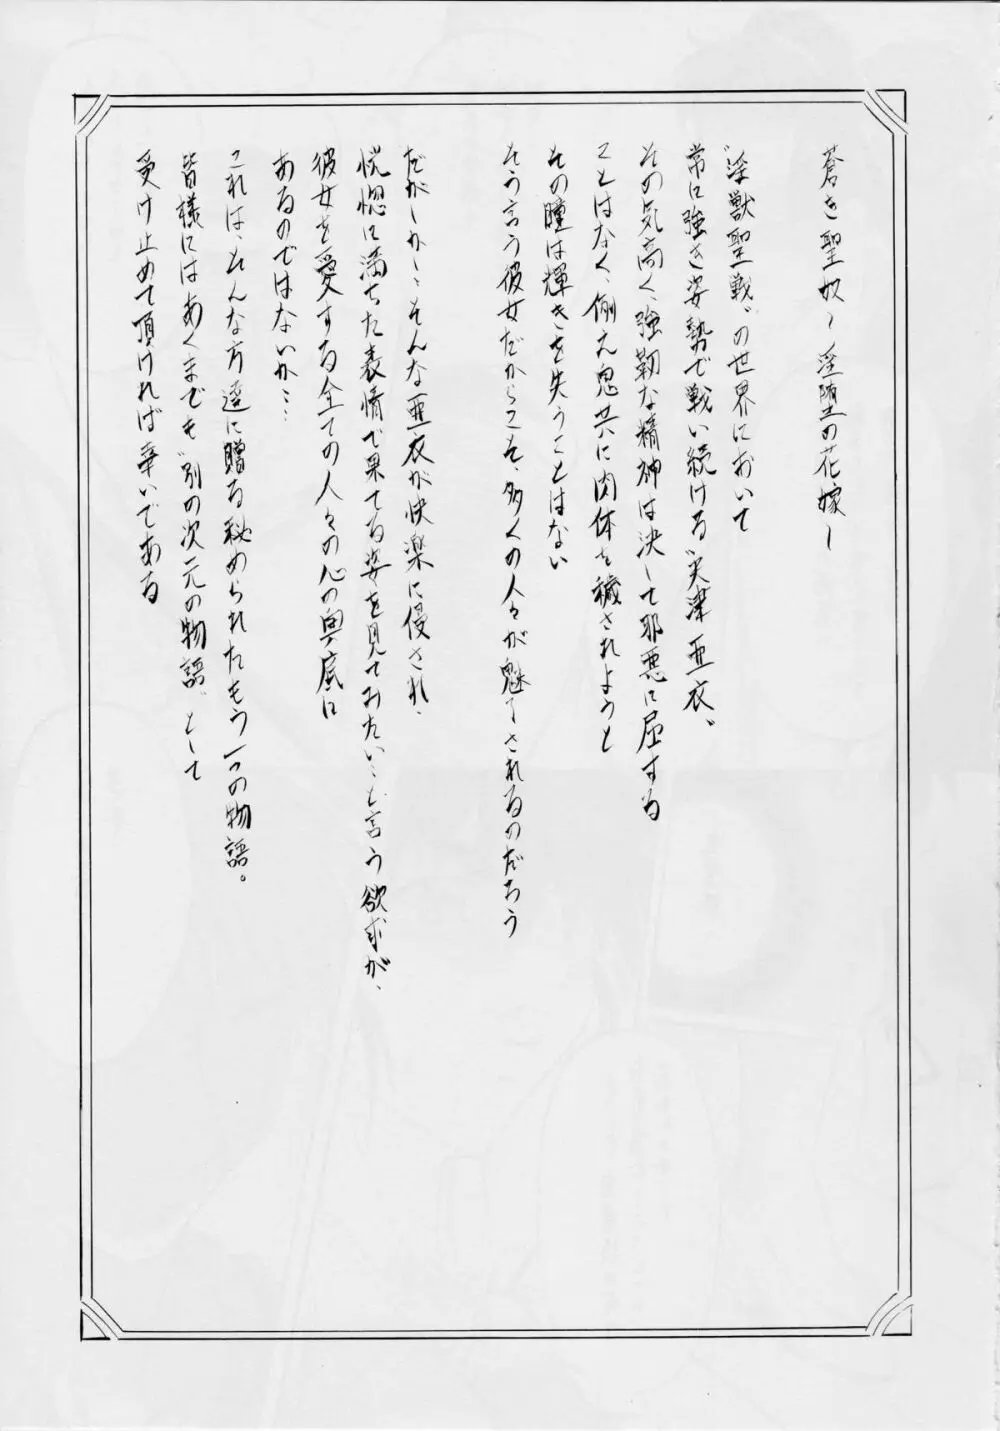 蒼き聖奴〜淫堕の花嫁〜
〝淫獣聖戦〟の世界において
常に強き姿勢で戦い続ける〝天津亜衣〟
その気高く、強靭な精神は決して邪悪に屈する
ことはなく、例え鬼共に肉体を穢されようと
その瞳は輝きを失うことはない
そう言う彼女だからこそ、多くの人々が魅了されるのだろう
だがしかし、そんな亜衣が快楽に侵され、
恍惚に満ちた表情で果てる姿を見ておたい…と言う欲求が、
彼女を愛する全ての人々の心の奥底に
あるのではないか…
これは、そんな方達に贈る秘められたもう一つの物語。
皆様にはあくまでも〝別の次元の物語〟として
受け止めて頂ければ幸いである